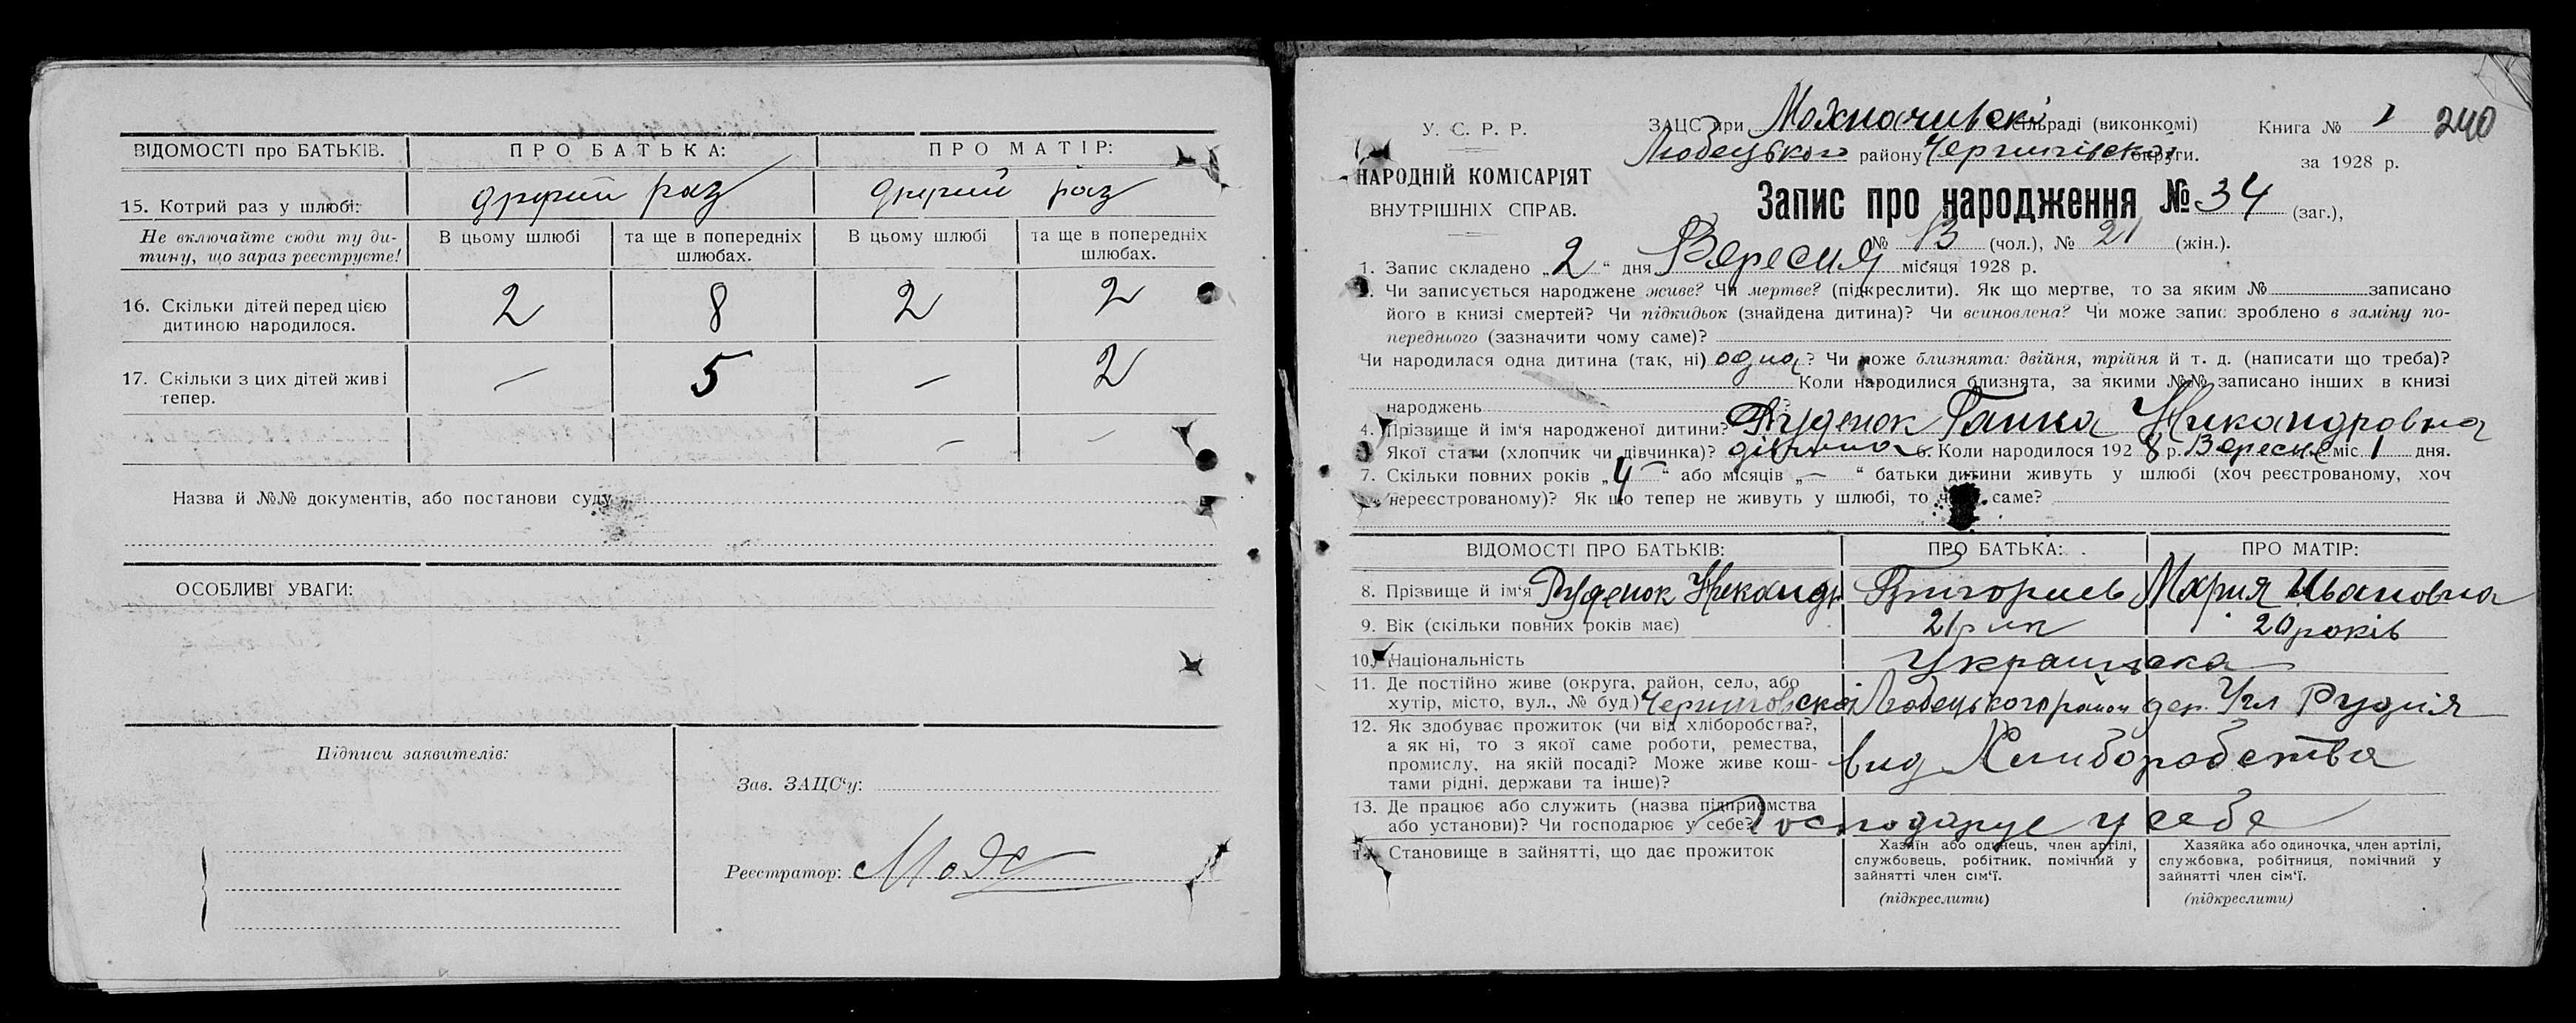 ВІДОМОСТІ про БАТЬКІВ.
ПРО БАТЬКА:
ПРО МАТІР:
15. Котрий раз у шлюбі:
другий раз
другий раз
Не включайте сюди ту ди-
тину, що зараз реєструєте!
В цьому шлюбі
та ще в попередніх
шлюбах.
В цьому шлюбі
та ще в попередніх
шлюбах.
16. Скільки дітей перед цією
дитиною народилося.
2
8
2
2
17. Скільки з цих дітей живі
тепер.
—
5
—
2
—
—
Назва й №№ документів, або постанови суду
ОСОБЛИВІ УВАГИ:
Підписи заявителів:
Зав. ЗАЦС'у:
Реєстратор:
У. С. Р. Р.
НАРОДНІЙ КОМІСАРІЯТ
ВНУТРІШНІХ СПРАВ.
ЗАЦС при Мохначивскі сільраді (виконкомі)
Любецького району Чернигівскоі округи.
Книга № 1 240
за 1928 р.
Запис про народження № 34 (заг.),
№ 13 (чол.), № 21 (жін.).
1. Запис складено „2" дня Вересня місяця 1928 р.
2. Чи записується народжене живе? Чи мертве? (підкреслити). Як що мертве, то за яким № записано
його в книзі смертей? Чи підкидьок (знайдена дитина)? Чи всиновлена? Чи може запис зроблено в заміну по-
переднього (зазначити чому саме)?
Чи народилася одна дитина (так, ні) одна? Чи може близнята: двійня, трійня й т. д. (написати що треба)?
Коли народилися близнята, за якими №№ записано інших в книзі
народжень
4. Прізвище й ім'я народженої дитини? Руденок Ганна Никандровна
Якої стати (хлопчик чи дівчинка)? 6. Коли народилося 1928 р. Вересня міс 1 дня.
7. Скільки повних років „4" або місяців „—" батьки дитини живуть у шлюбі (хоч реєстрованому, хоч
нереєстрованому)? Як що тепер не живуть у шлюбі, то саме?
ВІДОМОСТІ ПРО БАТЬКІВ:
ПРО БАТЬКА:
ПРО МАТІР:
8. Прізвище й ім'я Руденок Никандр Григориев Мария Ивановна
9. Вік (скільки повних років має)
20 років
10. Національність
Украинска
11. Де постійно живе (округа, район, село, або
хутір, місто, вул., № буд.) Черниговскоі Любецького район дер. Рудня
12. Як здобуває прожиток (чи від хліборобства?,
а як ні, то з якої саме роботи, ремества,
промислу, на якій посаді? Може живе кош-
тами рідні, держави та інше)?
вид Хлиборобства
13. Де працює або служить (назва підприємства
або установи)? Чи господарює у себе? Господарує у себе
14. Становище в зайнятті, що дає прожиток
Хазяїн або одинець, член артілі,
службовець, робітник, помічний у
зайнятті член сім'ї.
(підкреслити)
Хазяйка або одиночка, член артілі,
службовка, робітниця, помічний у
зайнятті член сім'ї.
(підкреслити)